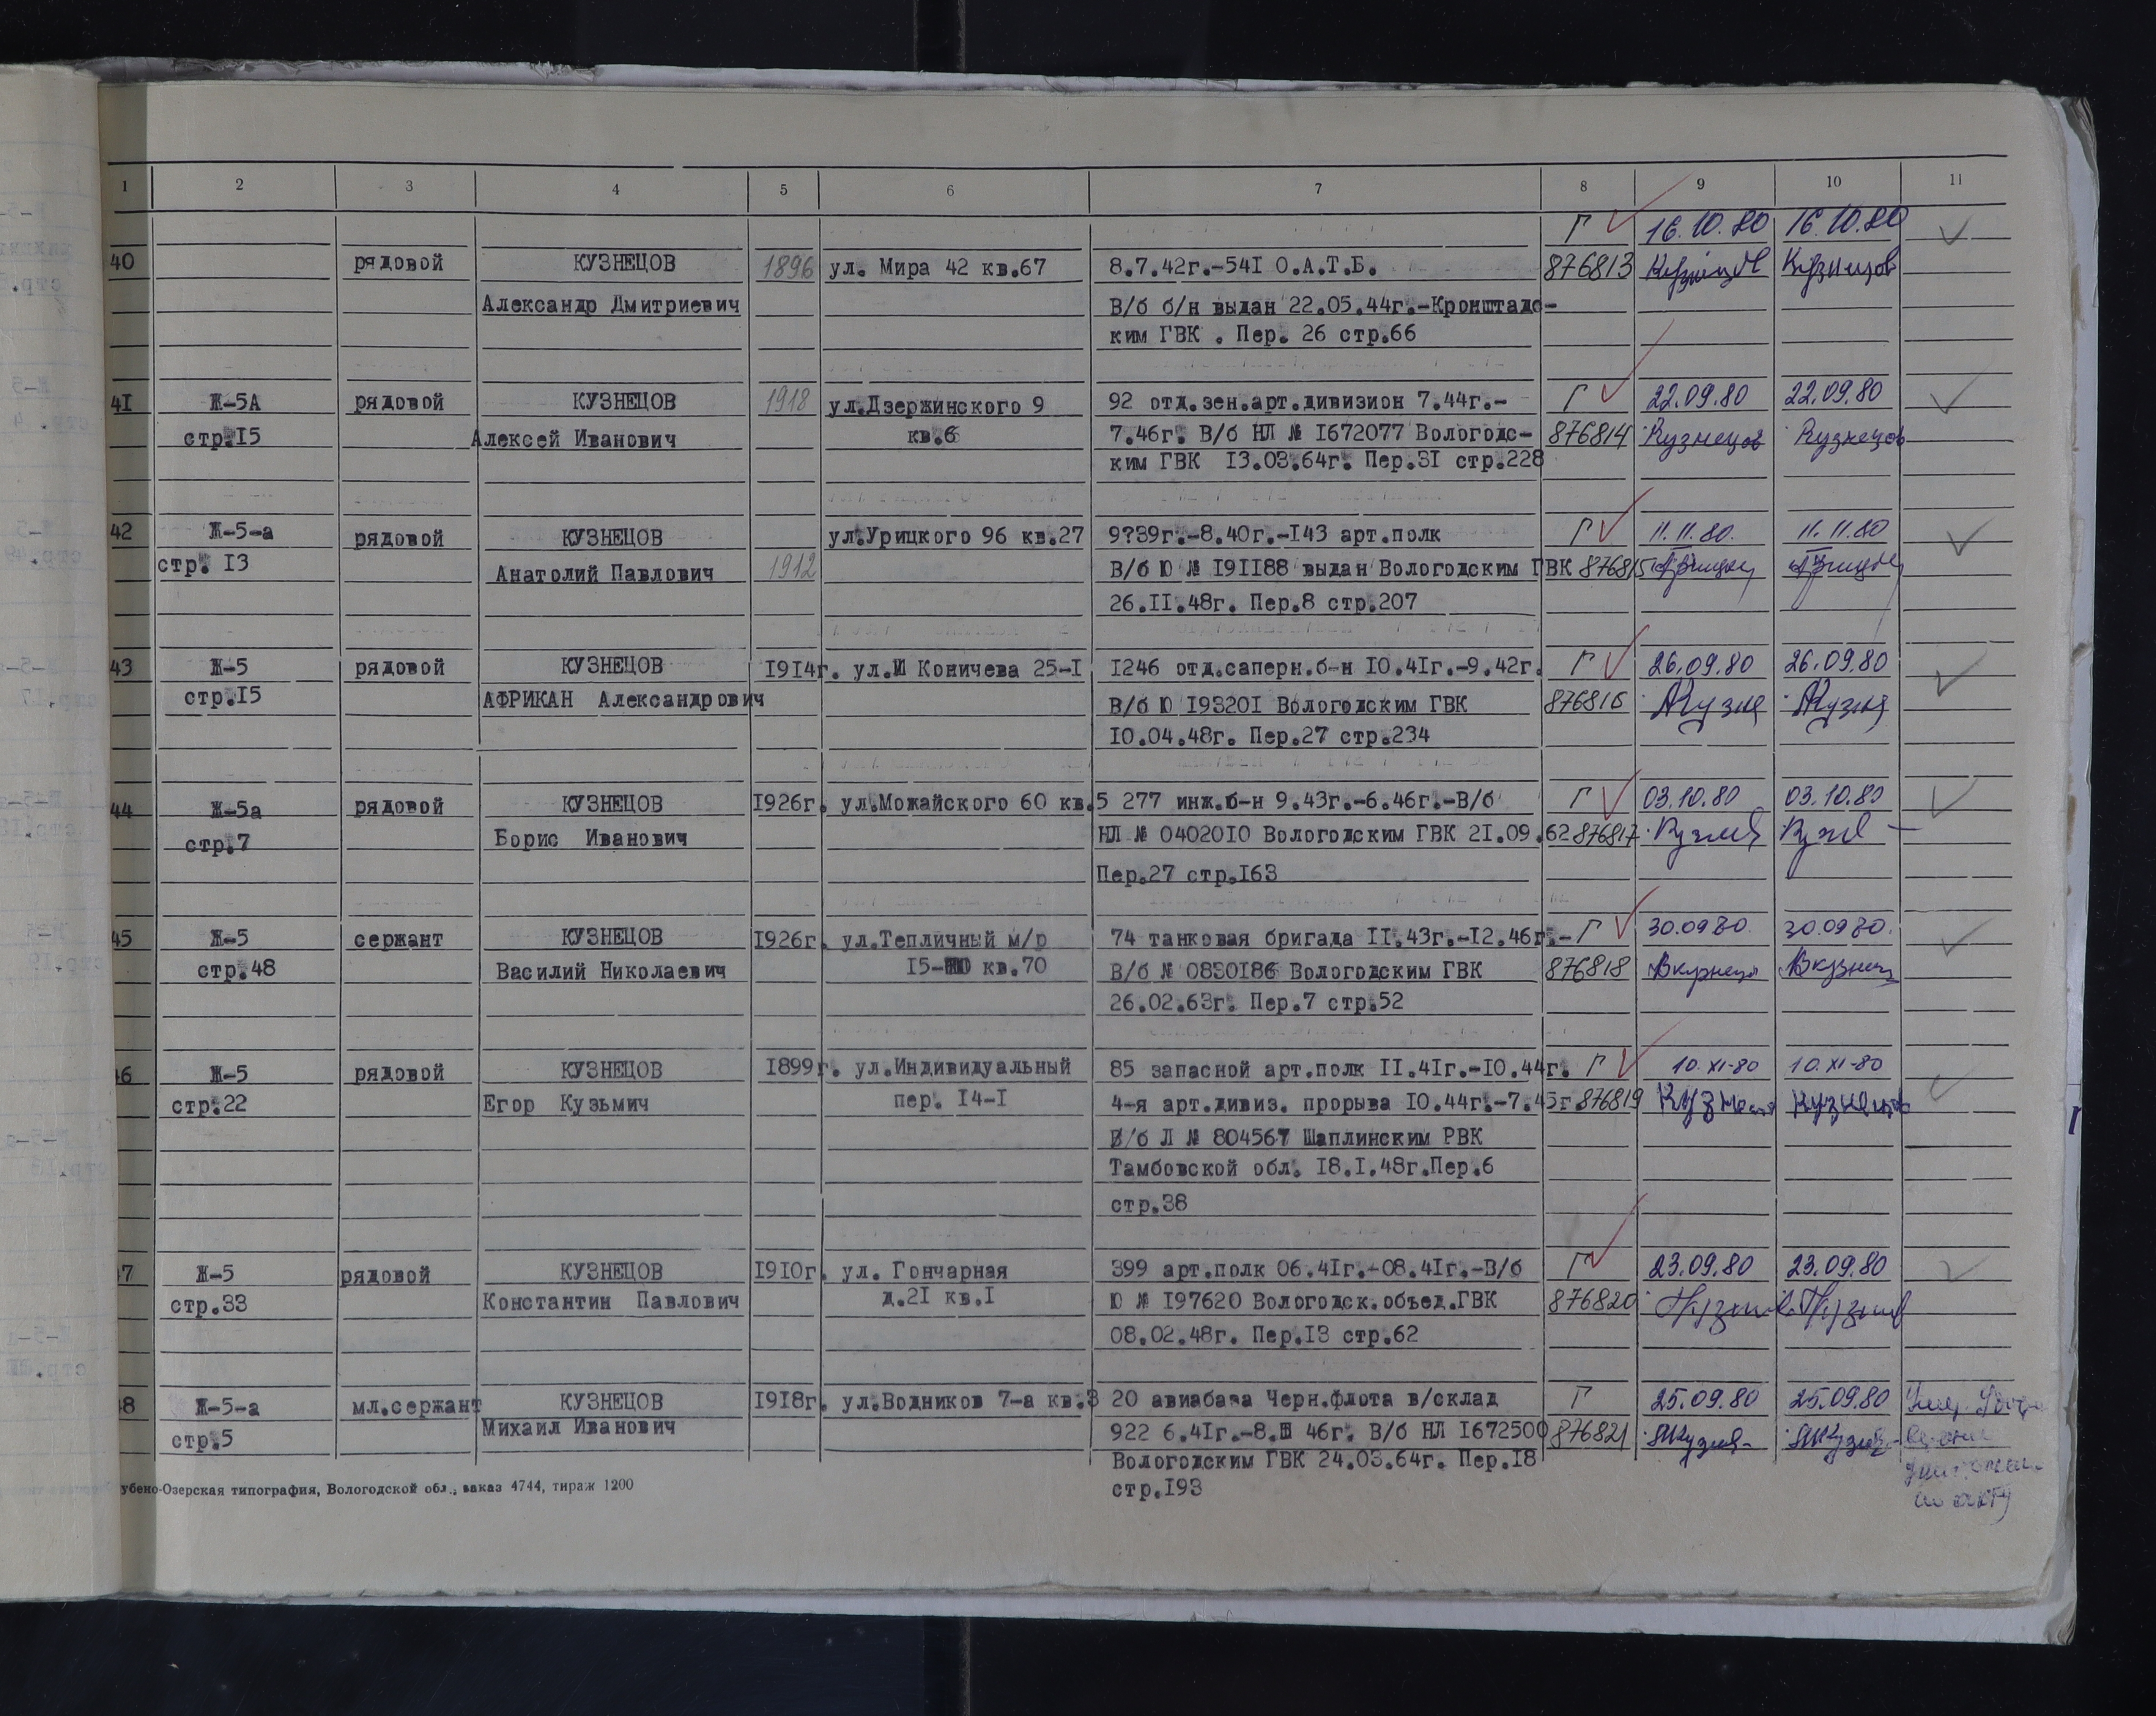 1 2 3 4 5 6 7 8 9 10 11
Г 16.10.80 16.10.80
40 рядовой КУЗНЕЦОВ 1896 ул. Мира 42 кв.67 8.7.42г.-541 О.А.Т.Б. 876813 Кузнецов Кузнецов
Александр Дмитриевич В/б б/н выдан 22.05.44г.-Кронштадс-
ким ГВК . Пер. 26 стр.66
41 Ж-5А рядовой КУЗНЕЦОВ 1918 ул.Дзержинского 9 92 отд.зен.арт.дивизион 7.44г.- Г 22.09.80 22.09.80
стр.15 Алексей Иванович кв.6 7.46г. В/б НЛ № 1672077 Вологодс- 876814 Кузнецов Кузнецов
ким ГВК 13.03.64г. Пер.31 стр.228
42 Ж-5-а рядовой КУЗНЕЦОВ ул.Урицкого 96 кв.27 9?39г.-8.40г.-143 арт.полк Г 11.11.80. 11.11.80
стр. 13 Анатолий Павлович 1912 В/б Ю № 191188 выдан Вологодским ГВК 876815
26.11.48г. Пер.8 стр.207
43 Ж-5 рядовой КУЗНЕЦОВ 1914г. ул. Коничева 25-1 1246 отд.саперн.б-н 10.41г.-9.42г. Г 26.09.80 26.09.80
стр.15 АФРИКАН Александрович В/б Ю 193201 Вологодским ГВК 876816
10.04.48г. Пер.27 стр.234
44 Ж-5а рядовой КУЗНЕЦОВ 1926г. ул.Можайского 60 кв.5 277 инж.б-н 9.43г.-6.46г.-В/б Г 03.10.80 03.10.80
стр.7 Борис Иванович НЛ № 0402010 Вологодским ГВК 21.09.62 876817
Пер.27 стр.163
45 Ж-5 сержант КУЗНЕЦОВ 1926г. ул.Тепличный м/р 74 танковая бригада 11.43г.-12.46г.- Г 30.09.80. 30.09.80.
стр.48 Василий Николаевич 15- кв.70 В/б № 0830186 Вологодским ГВК 876818
26.02.63г. Пер.7 стр.52
46 Ж-5 рядовой КУЗНЕЦОВ 1899г. ул.Индивидуальный 85 запасной арт.полк 11.41г.-10.44г. Г 10.XI-80 10.XI-80
стр.22 Егор Кузьмич пер. 14-1 4-я арт.дивиз. прорыва 10.44г.-7.45г. 876819 Кузнецов
В/б Л № 804567 Шаплинским РВК
Тамбовской обл. 18.1.48г.Пер.6
стр.38
47 Ж-5 рядовой КУЗНЕЦОВ 1910г. ул. Гончарная 399 арт.полк 06.41г.-08.41г.-В/б Г 23.09.80 23.09.80
стр.33 Константин Павлович д.21 кв.1 Ю № 197620 Вологодск.объед.ГВК 876820
08.02.48г. Пер.13 стр.62
48 Ж-5-а мл.сержант КУЗНЕЦОВ 1918г. ул.Водников 7-а кв.3 20 авиабаза Черн.флота в/склад Г 25.09.80 25.09.80
стр.5 Михаил Иванович 922 6.41г.-8. 46г. В/б НЛ 1672500 876821
Вологодским ГВК 24.03.64г. Пер.18
стр.193
по акту
убено-Озерская типография, Вологодской обл., заказ 4744, тираж 1200